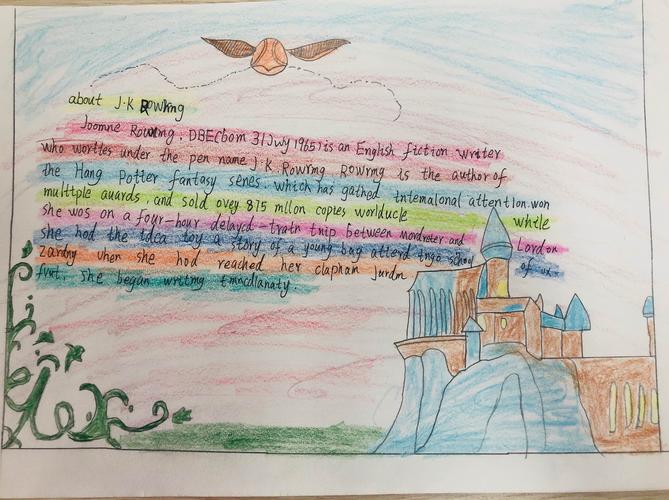 about J.K Rowring
Joomne Rowring, DBE(bom 31 Jwy 1965) is an English fiction writer
who worttes under the pen name J.K. Rowrmg Rowrmg is the author of
the Hang Potter fantasy senes, which has gathed intemalonal attention.won
multtple auards, and sold ovey 815 mllon copies worlducle while
she wos on a four-hour delaycd-tratn tnip between mordreter and Lordon
she hod the tdca toy a story of a young bag attend tngo school of ux-
zardny when she hod reached her claphan jurdn
fwt. she began writmg tmncdlanaty